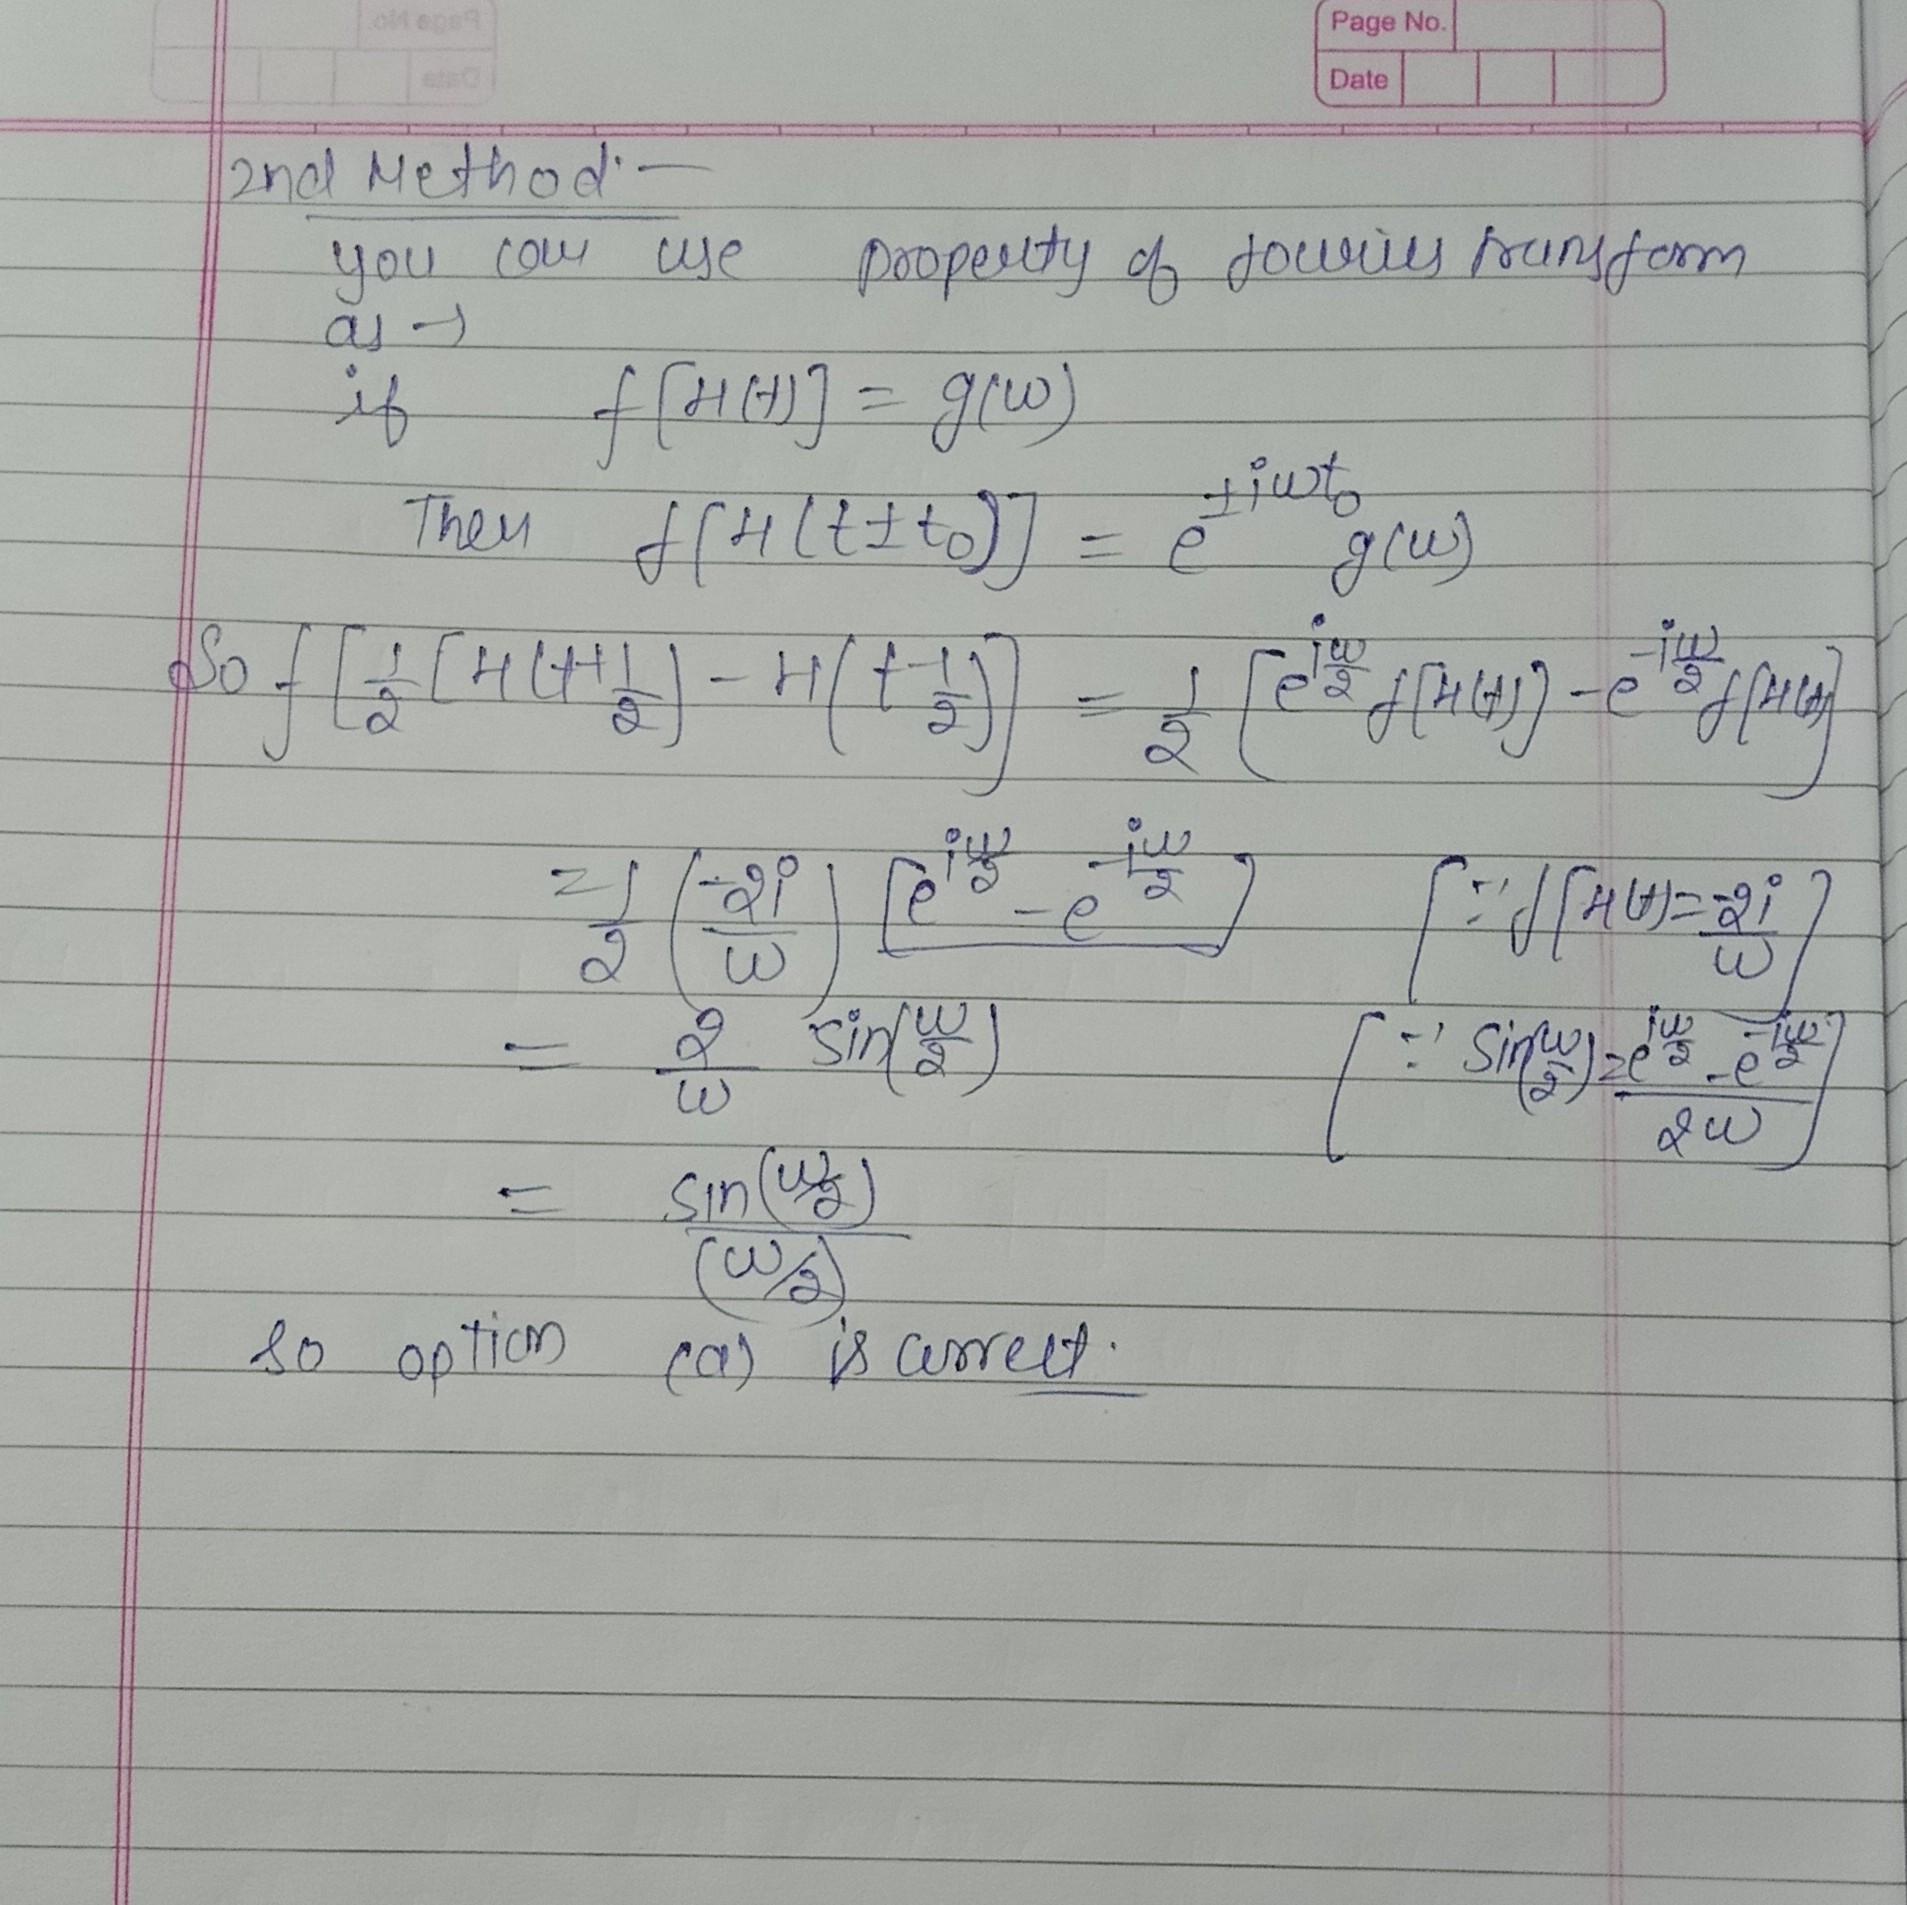 Page No.
Date
2nd Method:—
you can use property of fourier transform
as →
if f[H(t)] = g(ω)
Then f[H(t±t₀)] = e^{±iωt₀} g(ω)
So f[½[H(t+½) - H(t-½)] = ½[e^{iω/2} f[H(t)] - e^{-iω/2} f[H(t)]
= ½ (-2i/ω) [e^{iω/2} - e^{-iω/2}] [∵ f[H(t) = -2i/ω]
= 2/ω sin(ω/2) [∵ sin(ω/2) = (e^{iω/2} - e^{-iω/2})/2ω]
= sin(ω/2)/(ω/2)
So option (a) is correct.